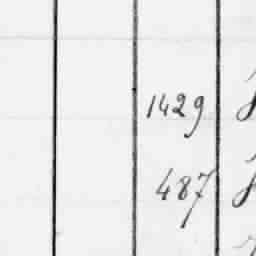 1429
487